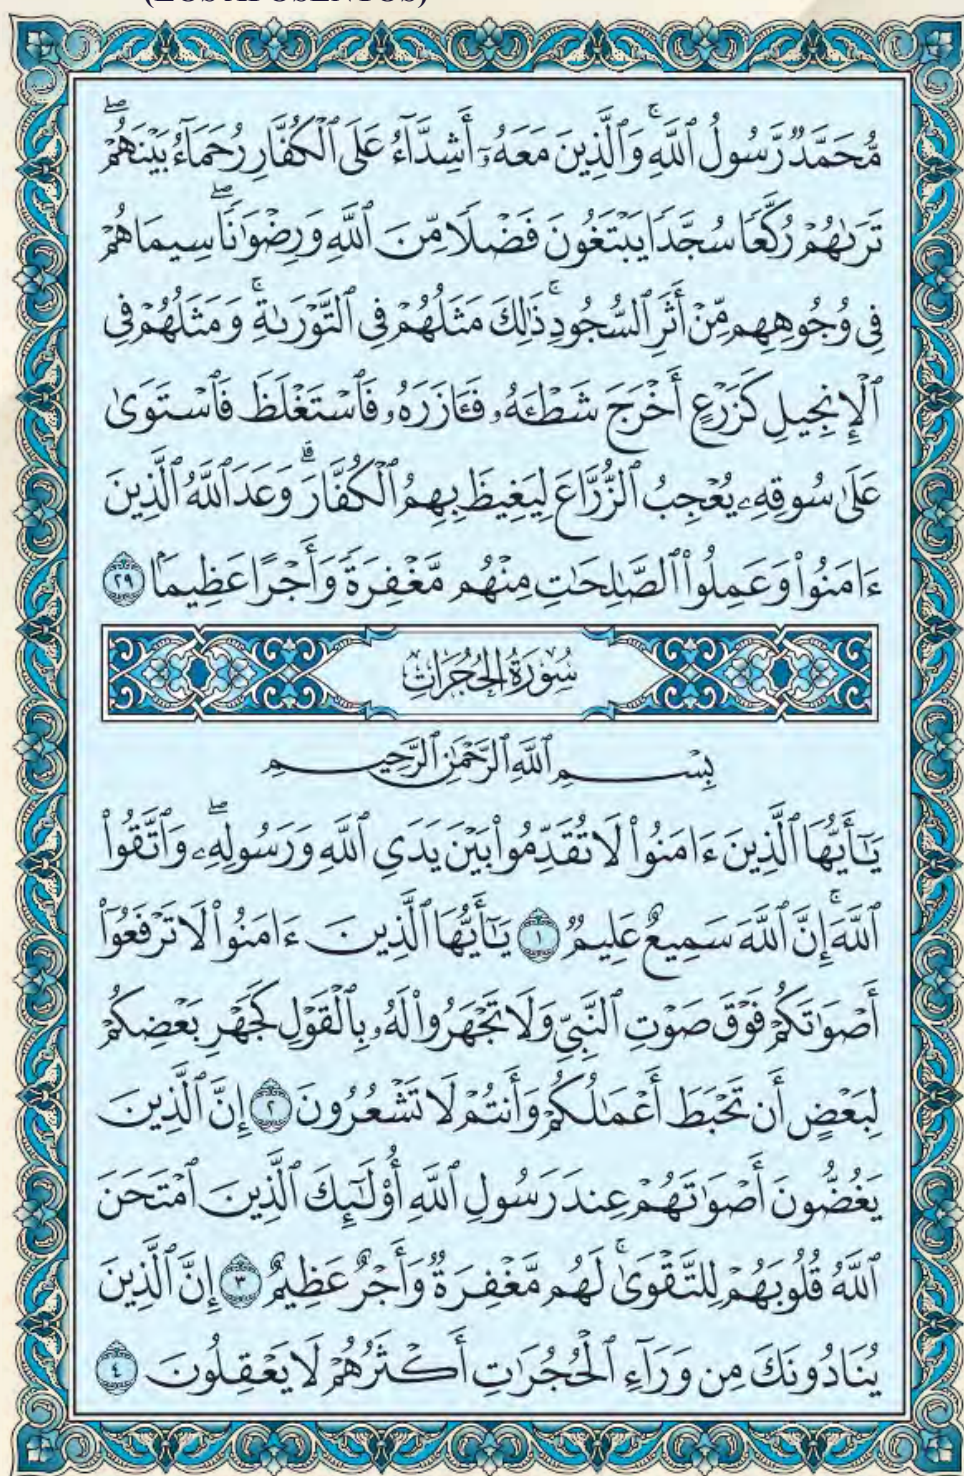 (LOS APOSENTOS)
مُّحَمَّدٌ رَّسُولُ ٱللَّهِۚ وَٱلَّذِينَ مَعَهُۥٓ أَشِدَّآءُ عَلَى ٱلۡكُفَّارِ رُحَمَآءُ بَيۡنَهُمۡۖ
تَرَىٰهُمۡ رُكَّعٗا سُجَّدٗا يَبۡتَغُونَ فَضۡلٗا مِّنَ ٱللَّهِ وَرِضۡوَٰنٗاۖ سِيمَاهُمۡ
فِي وُجُوهِهِم مِّنۡ أَثَرِ ٱلسُّجُودِۚ ذَٰلِكَ مَثَلُهُمۡ فِي ٱلتَّوۡرَىٰةِۚ وَمَثَلُهُمۡ فِي
ٱلۡإِنجِيلِ كَزَرۡعٍ أَخۡرَجَ شَطۡـَٔهُۥ فَـَٔازَرَهُۥ فَٱسۡتَغۡلَظَ فَٱسۡتَوَىٰ
عَلَىٰ سُوقِهِۦ يُعۡجِبُ ٱلزُّرَّاعَ لِيَغِيظَ بِهِمُ ٱلۡكُفَّارَۗ وَعَدَ ٱللَّهُ ٱلَّذِينَ
ءَامَنُواْ وَعَمِلُواْ ٱلصَّٰلِحَٰتِ مِنۡهُم مَّغۡفِرَةٗ وَأَجۡرًا عَظِيمَۢا ٢٩
سُورَةُ الحُجُرَاتِ
بِسۡمِ ٱللَّهِ ٱلرَّحۡمَٰنِ ٱلرَّحِيمِ
يَٰٓأَيُّهَا ٱلَّذِينَ ءَامَنُواْ لَا تُقَدِّمُواْ بَيۡنَ يَدَيِ ٱللَّهِ وَرَسُولِهِۦۖ وَٱتَّقُواْ
ٱللَّهَۚ إِنَّ ٱللَّهَ سَمِيعٌ عَلِيمٞ ١ يَٰٓأَيُّهَا ٱلَّذِينَ ءَامَنُواْ لَا تَرۡفَعُوٓاْ
أَصۡوَٰتَكُمۡ فَوۡقَ صَوۡتِ ٱلنَّبِيِّ وَلَا تَجۡهَرُواْ لَهُۥ بِٱلۡقَوۡلِ كَجَهۡرِ بَعۡضِكُمۡ
لِبَعۡضٍ أَن تَحۡبَطَ أَعۡمَٰلُكُمۡ وَأَنتُمۡ لَا تَشۡعُرُونَ ٢ إِنَّ ٱلَّذِينَ
يَغُضُّونَ أَصۡوَٰتَهُمۡ عِندَ رَسُولِ ٱللَّهِ أُوْلَٰٓئِكَ ٱلَّذِينَ ٱمۡتَحَنَ
ٱللَّهُ قُلُوبَهُمۡ لِلتَّقۡوَىٰۚ لَهُم مَّغۡفِرَةٞ وَأَجۡرٌ عَظِيمٌ ٣ إِنَّ ٱلَّذِينَ
يُنَادُونَكَ مِن وَرَآءِ ٱلۡحُجُرَٰتِ أَكۡثَرُهُمۡ لَا يَعۡقِلُونَ ٤